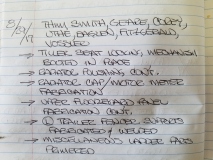 THIM, SMITH, GERACE, COREY,
LITHE, EAGLEN, FITZGERALD,
→ TILLER SEAT LOCKING MECHANISM
BOLTED IN PLACE
→ POLISHING CONT.
→ CAP/MOTOR METER
FABRICATION
→ FLOORBOARD PANEL
FABRICATION CONT.
→ TRAILER FENDER SUPPORTS
FABRICATED & WELDED
→ MISCELLANEOUS LADDER PARTS
PRIMERED